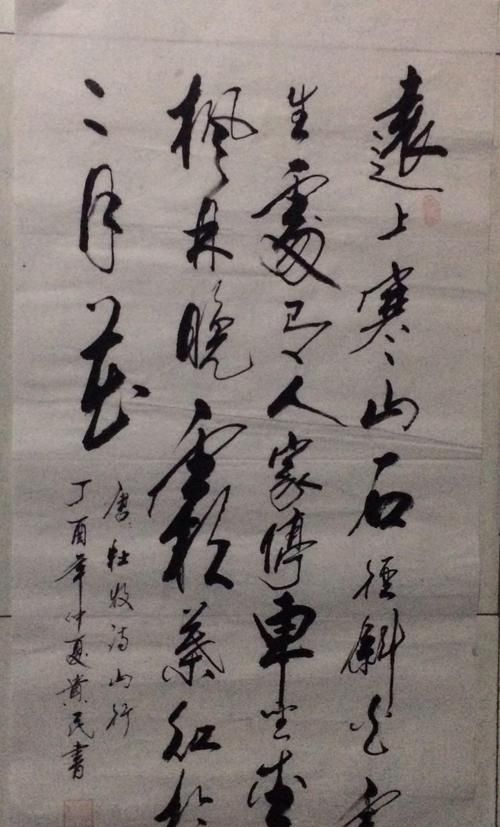 遠上寒山石徑斜白雲
生處有人家停車坐愛
楓林晚霜葉紅於
二月花
唐杜牧詩山行
丁酉年仲夏貴民書